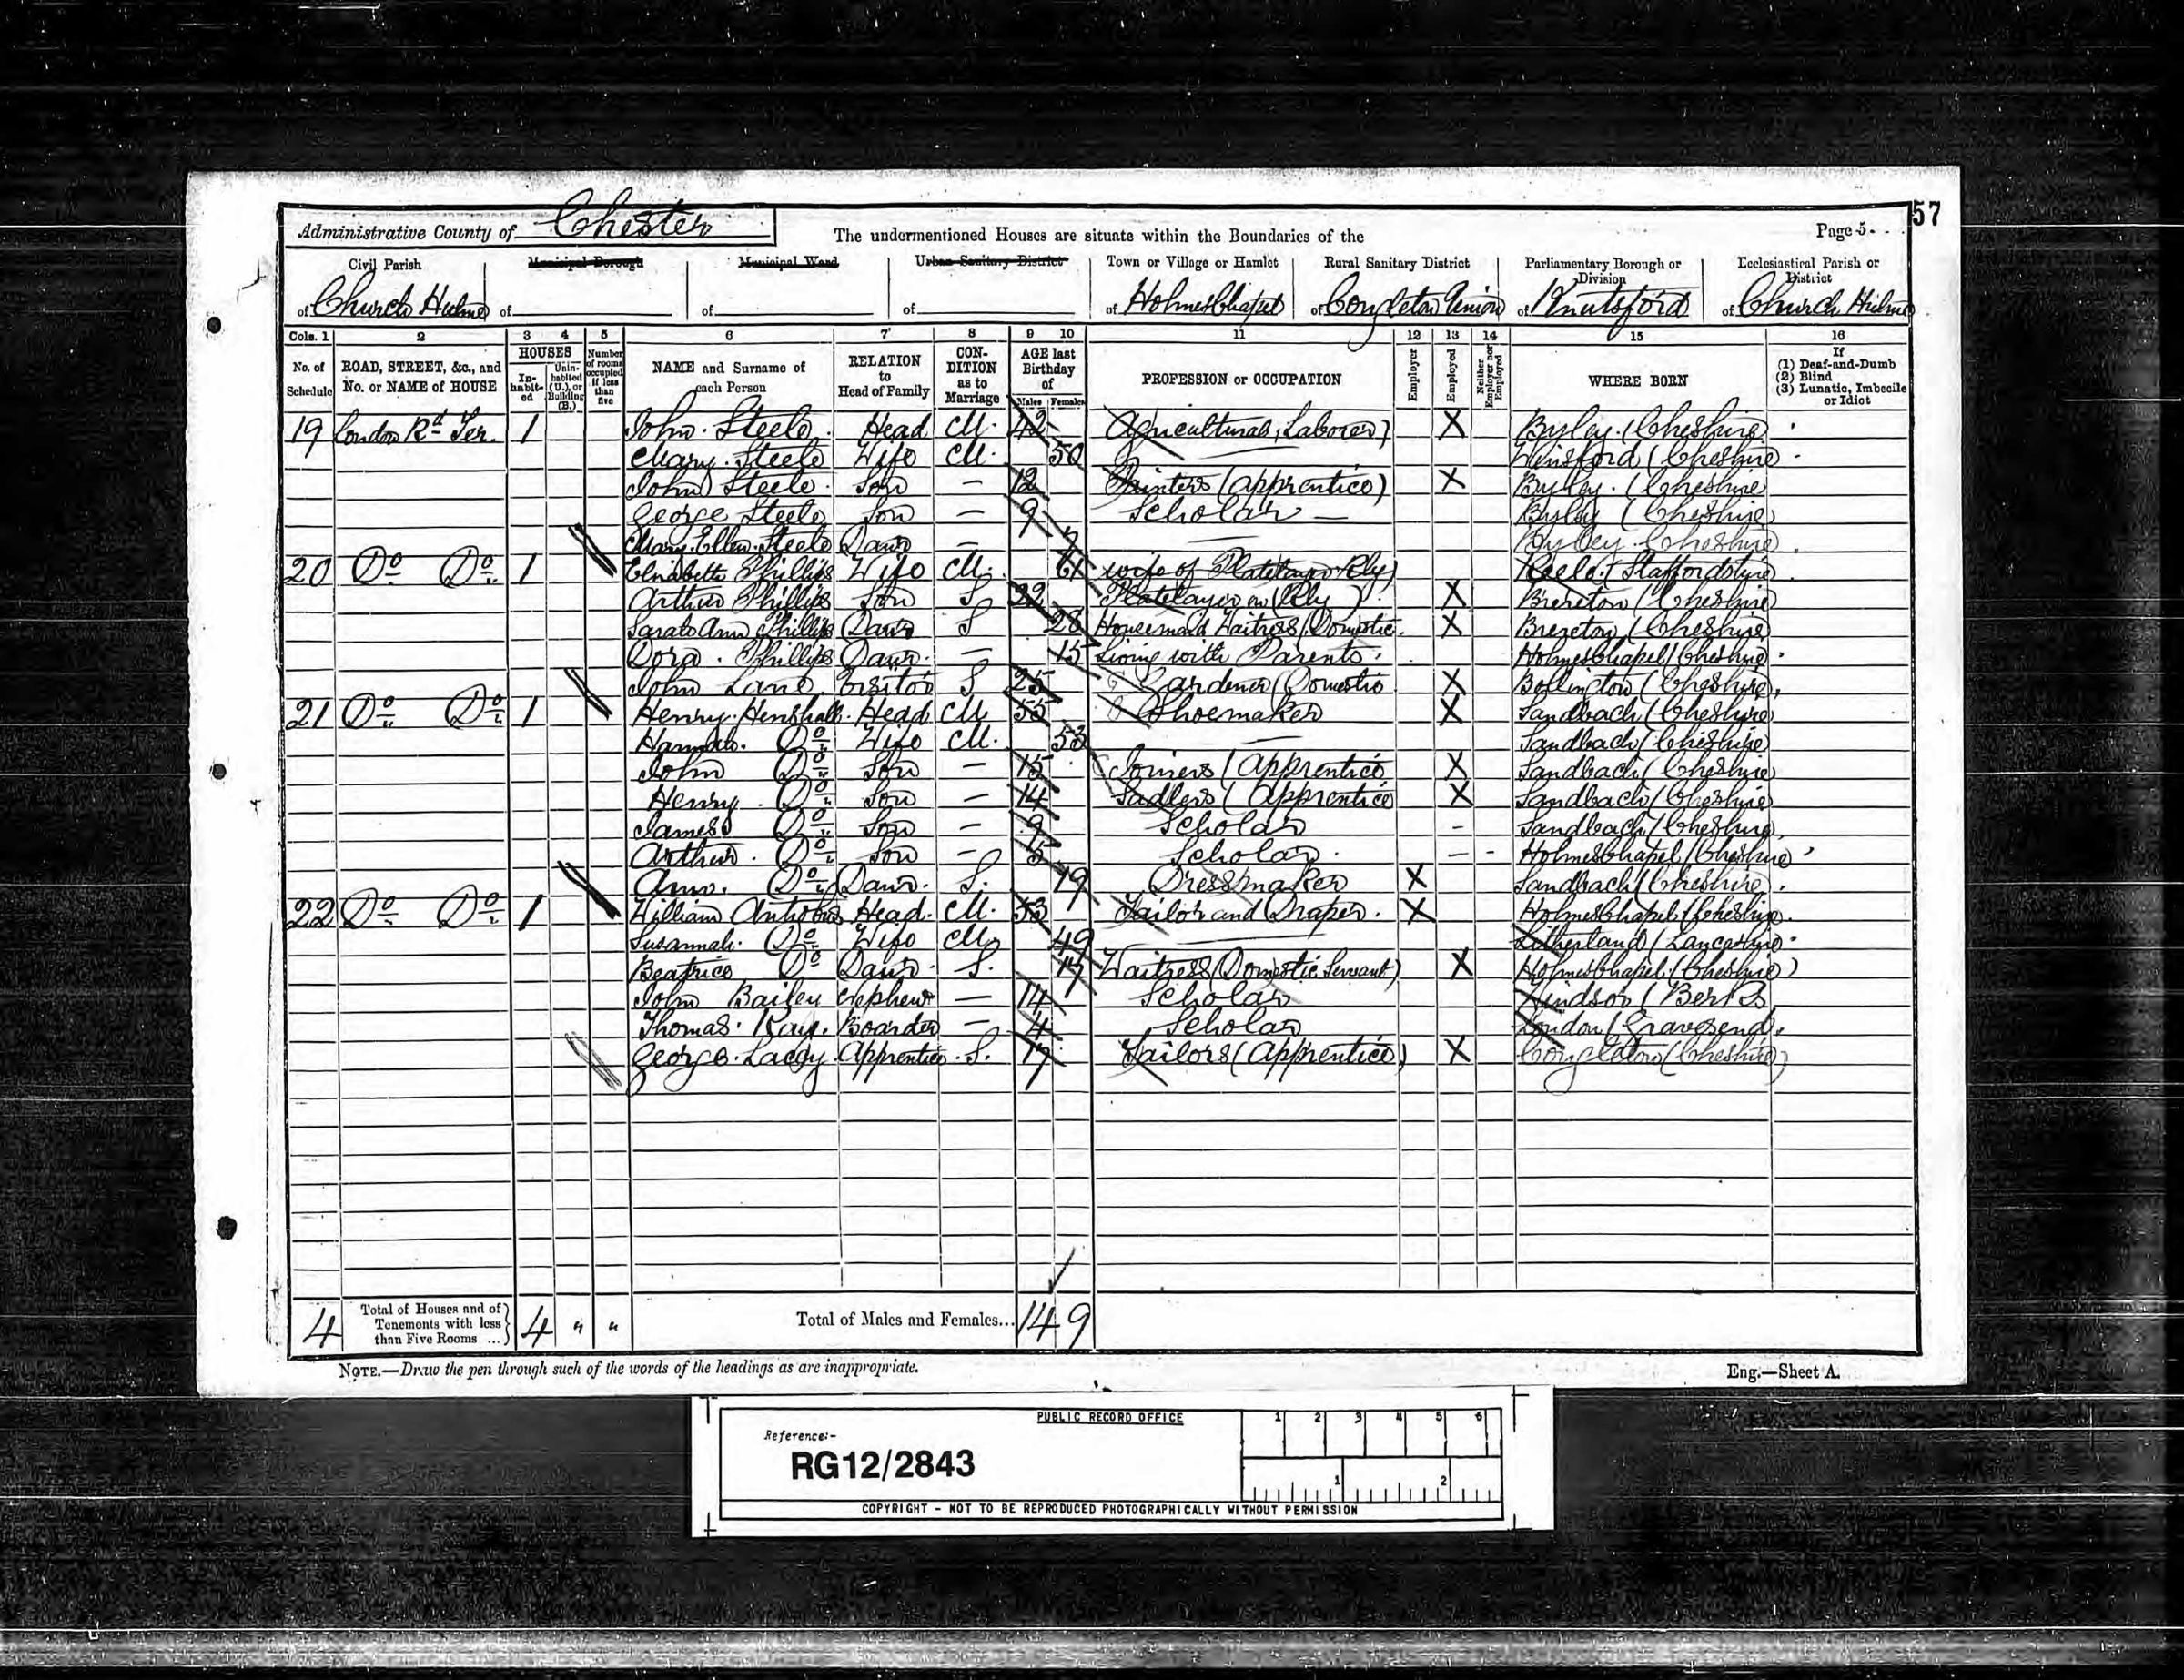 57
Administrative County of Chester
The undermentioned Houses are situate within the Boundaries of the
Page 5
Civil Parish
Municipal Borough
Municipal Ward
Urban Sanitary District
Town or Village or Hamlet
Rural Sanitary District
Parliamentary Borough or Division
Ecclesiastical Parish or District
of Church Hulme of of of of Holmes Chapel of Congleton Union of Knutsford of Church Hulme
Cols. 1 2 3 4 5 6 7 8 9 10 11 12 13 14 15 16
No. of Schedule
ROAD, STREET, &c., and No. or NAME of HOUSE
HOUSES
In-habit-ed
Unin-habited (U.), or Building (B.)
Number of rooms occupied if less than five
NAME and Surname of each Person
RELATION to Head of Family
CON-DITION as to Marriage
AGE last Birthday of
Males Females
PROFESSION or OCCUPATION
Employer
Employed
Neither Employer nor Employed
WHERE BORN
If
(1) Deaf-and-Dumb
(2) Blind
(3) Lunatic, Imbecile or Idiot
19 London Rd Ter. 1 John Steele Head M. 42 Agricultural Laborer X Byley (Cheshire)
Mary Steele Wife M. 50 Winsford (Cheshire)
John Steele Son — 12 Printers (apprentice) X Byley (Cheshire)
George Steele Son — 9 Scholar — Byley (Cheshire)
Mary Ellen Steele Daur — 7 Byley Cheshire
20 Do Do 1 Elizabeth Phillips Wife M. 61 wife of Platelayer Rly Keele (Staffordshire)
Arthur Phillips Son S 22 Platelayer on (Rly) X Brereton (Cheshire)
Sarah Ann Phillips Daur S 28 Housemaid Waitress (Domestic X Brereton (Cheshire)
Dora Phillips Daur — 15 Living with Parents. Holmes Chapel (Cheshire)
John Lane Visitor S 25 Gardener (Domestic X Bollington (Cheshire)
21 Do Do 1 Henry Henshall Head M 55 Shoemaker X Sandbach (Cheshire)
Hannah Do Wife M. 53 Sandbach (Cheshire)
John Do Son — 15 Joiners (Apprentice X Sandbach (Cheshire)
Henry Do Son — 14 Sadlers (Apprentice X Sandbach (Cheshire)
James Do Son — 9 Scholar - Sandbach (Cheshire)
Arthur Do Son — 5 Scholar — - Holmes Chapel (Cheshire)
Ann Do Daur. S. 19 Dressmaker X Sandbach (Cheshire)
22 Do Do 1 William Antrobus Head. M. 53 Tailor and Draper. X Holmes Chapel (Cheshire)
Susannah Do Wife M. 49 Litherland (Lancashire)
Beatrice Do Daur S. 17 Waitress (Domestic Servant) X Holmes Chapel (Cheshire)
John Bailey Nephew — 14 Scholar Windsor (Berks
Thomas Boarder — 4 Scholar London (Gravesend.
George Lacey Apprentice S. 17 Tailors (Apprentice) X Congleton (Cheshire)
4 Total of Houses and of Tenements with less than Five Rooms ... 4 " " Total of Males and Females... 14 9
NOTE.—Draw the pen through such of the words of the headings as are inappropriate.
Eng.—Sheet A.
PUBLIC RECORD OFFICE
Reference:-
RG12/2843
1 2 3 4 5 6
1 2
COPYRIGHT - NOT TO BE REPRODUCED PHOTOGRAPHICALLY WITHOUT PERMISSION